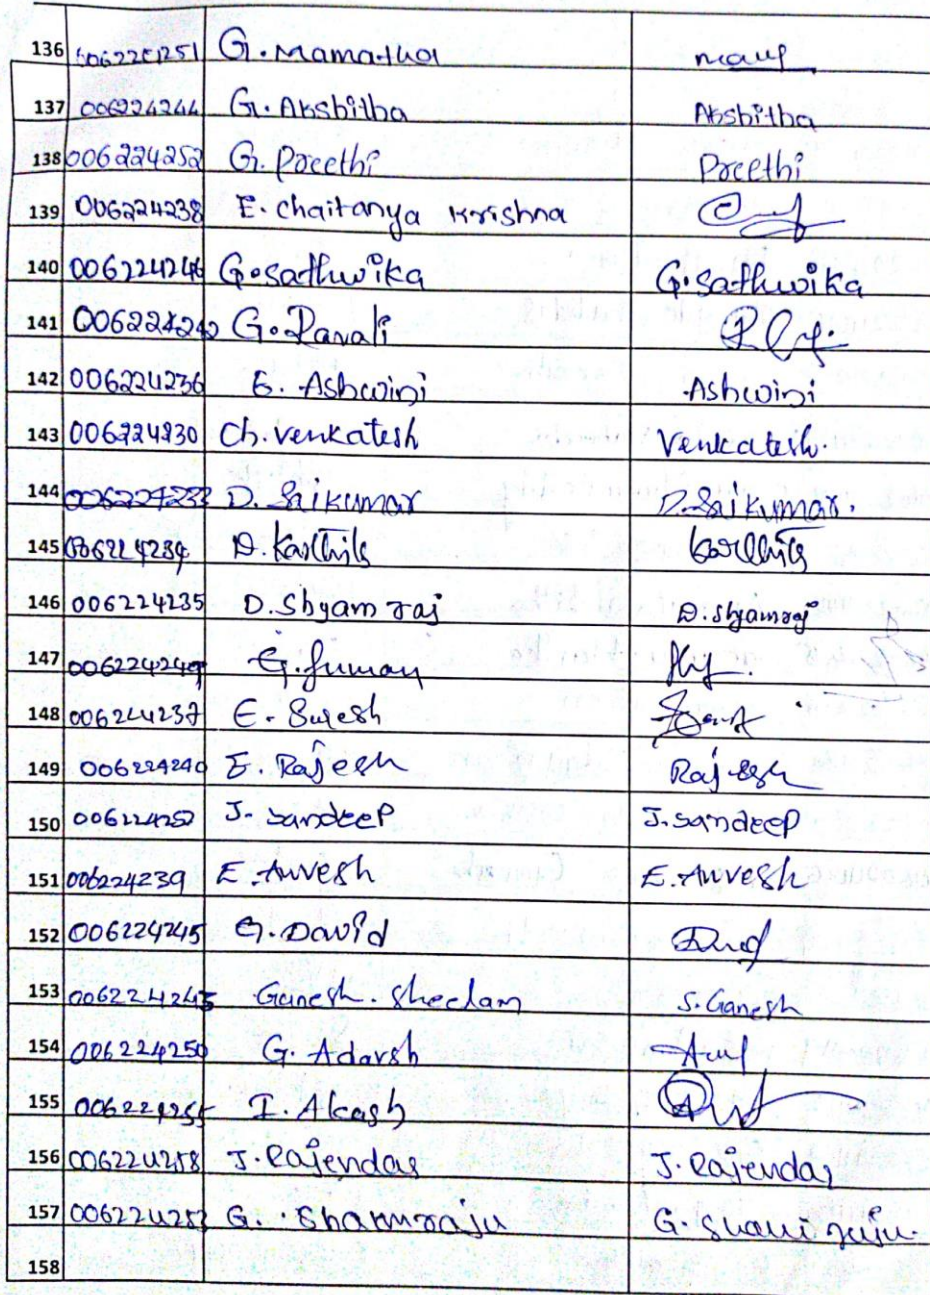 136 006224251 G. Mamatha
137 006224244 G. Akshitha Akshitha
138 006224252 G. Preethi Preethi
139 006224238 E. Chaitanya Krishna
140 006224246 G. Sathwika G. Sathwika
141 006224242 G. Ravali
142 006224236 E. Ashwini Ashwini
143 006224230 Ch. Venkatesh Venkatesh.
144 006224233 D. Saikumar D. Saikumar.
145 006224234 D. Karthik Karthik
146 006224235 D. Shyam raj D. Shyamraj
147 006224249 G. Suman
148 006224237 E. Suresh
149 006224240 E. Rajesh Rajesh
150 J. Sandeep J. Sandeep
151 006224239 E. Anvesh E. Anvesh
152 006224245 G. David
153 Ganesh. Sheelam S. Ganesh
154 006224250 G. Adarsh
155 I. Akash
156 006224258 J. Rajendar J. Rajendar
157 006224253 G. Shamraju G.
158